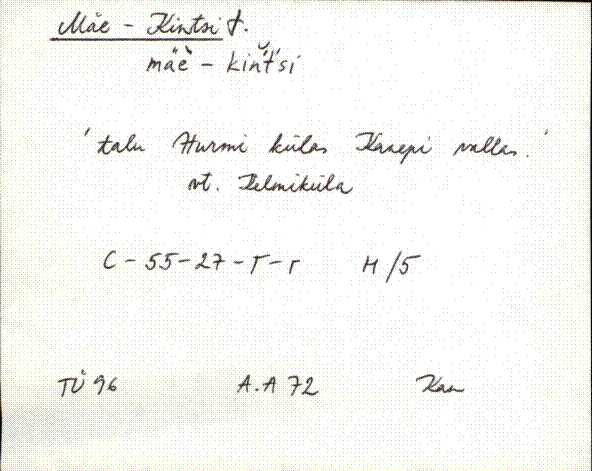 Mäe - Kintsi t.
mäè - kin̆t́śi
'talu Hurmi külas Kanepi vallas.'
vt. Kelmiküla
C - 55 - 27 - Г - г H/5
TÜ 96 A.A 72 Kan